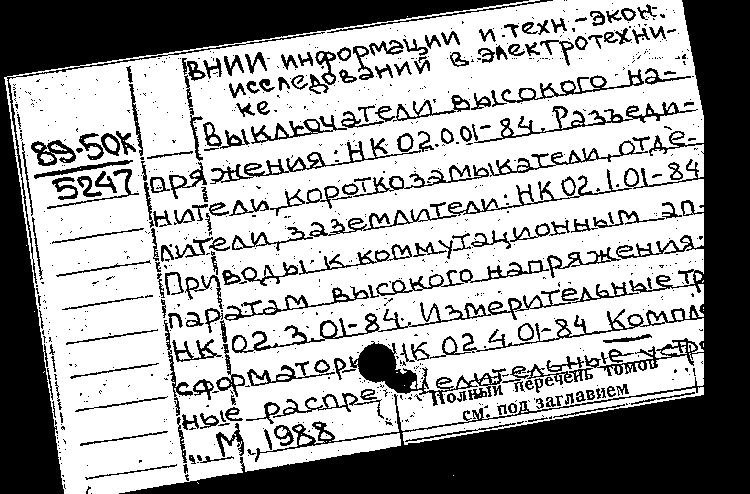 ВНИИ информации и техн.-экон.
исследований в электротехни-
ке.
89-50К
5247
Выключатели высокого на-
пряжения: НК 02.0.01-84. Разъеди-
нители, короткозамыкатели, отде-
лители, заземлители: НК 02.1.01-84
Приводы к коммутационным ап-
паратам высокого напряжения:
НК 02.3.01-84. Измерительные тр
сформаторы НК 02.4.01-84. Компле
ные распределительные устро
Полный перечень томов
см. под заглавием
... М., 1988